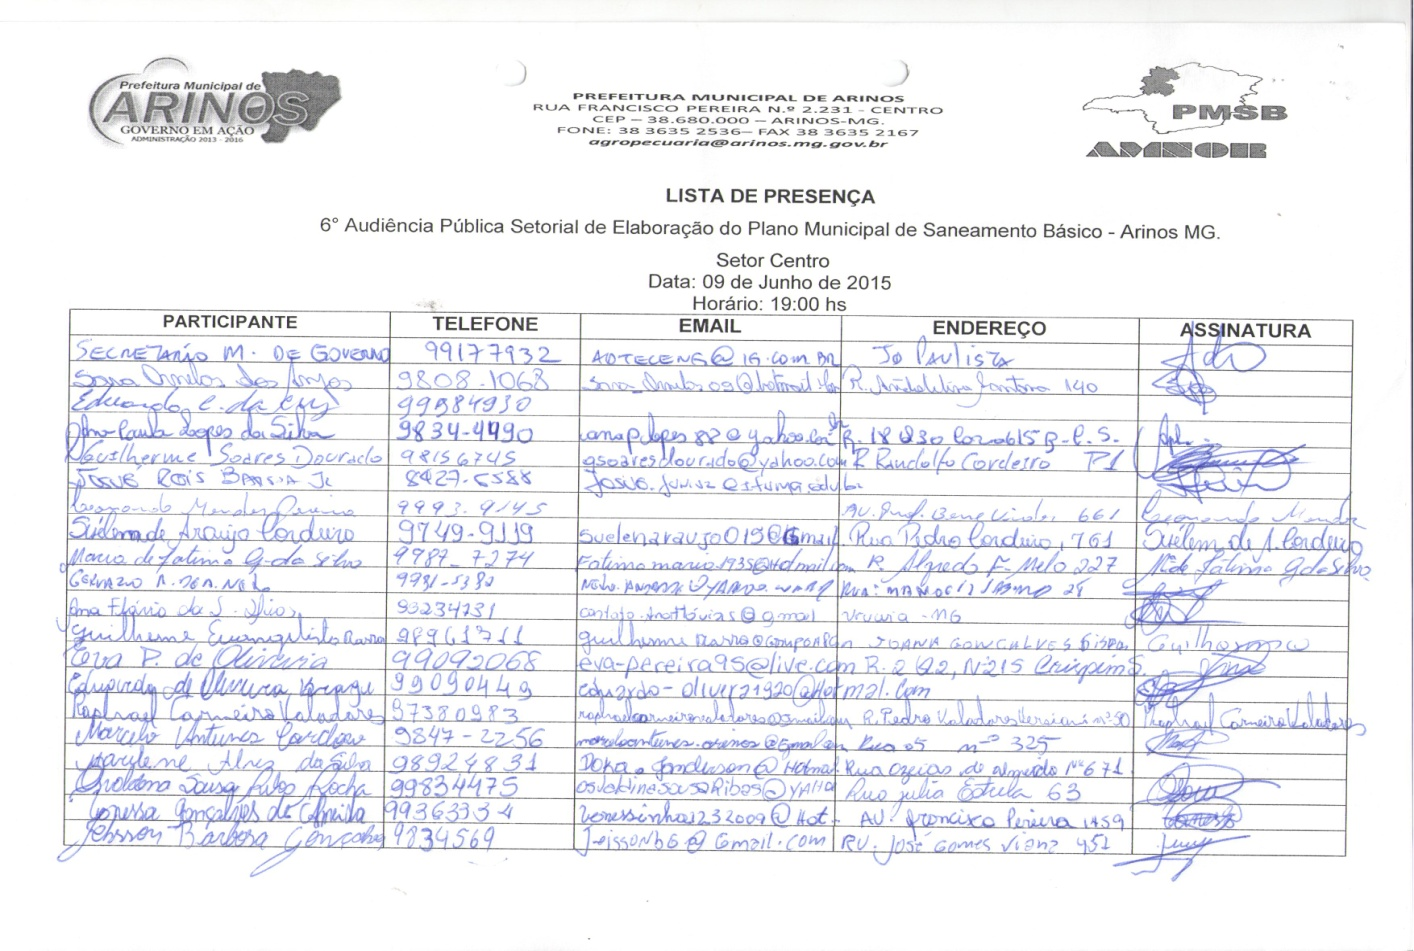 Prefeitura Municipal de
ARINOS
GOVERNO EM AÇÃO
ADMINISTRAÇÃO 2013 - 2016
PREFEITURA MUNICIPAL DE ARINOS
RUA FRANCISCO PEREIRA N.º 2.231 - CENTRO
CEP – 38.680.000 – ARINOS-MG.
FONE: 38 3635 2536– FAX 38 3635 2167
agropecuaria@arinos.mg.gov.br
PMSB
AMNOR
LISTA DE PRESENÇA
6° Audiência Pública Setorial de Elaboração do Plano Municipal de Saneamento Básico - Arinos MG.
Setor Centro
Data: 09 de Junho de 2015
Horário: 19:00 hs
PARTICIPANTE TELEFONE EMAIL ENDEREÇO ASSINATURA
SECRETARIO M. DE GOVERNO 99177932 ADTECENG@IG.COM.BR Jo PAULISTA
Sara Ornelas dos Anjos 9808-1068 R. 140
Eduardo C. da Cruz 99984930
Ana Paula Lopes da Silva 9834-4490 anaplopes82@yahoo.com R. 18
Guilherme Soares Dourado 98156745 gsoaresdourado@yahoo.com R Randolfo Cordeiro
JOSUÉ REIS 8427-6588
Mendes 9993-9145 AV. 661
Suelem de Araujo Cordeiro 9749-9119 suelenaraujo019@Gmail. Rua Pedro Cordeiro, 761 Suélem de A. Cordeiro
Maria de Fátima G. da Silva 9987-7274 Fatima maria1935@Hotmail.com R. Alfredo F. Melo 227 Mª de Fátima G da Silva
GERVAZIO 9981-5380
Ana Flávia da S. 93234731 @gmail Urucuia - MG
Guilherme Evangelista 98961711 JOANA GONCALVES
Eva P. de Oliveira 99092068 eva-pereira95@live.com R. 2 Q2, Nº215 Crispim
Eduardo de Oliveira 99090449 eduardo-olivera1920@Hotmal.Com
Raphael Carneiro Valadares 97380983 raphaelcarneirovaladares@gmail.com R. Pedro Valadares nº50 Raphael Carneiro Valadares
Marcelo Antunes Cardoso 9847-2256 marceloantunes.arinos@Gmail.com Rua 05 nº 325
Alves da Silva 98924831 Rua de almeida Nº 671
Sousa Ribas Rocha 99834475 osvaldinesousaRibas@YAHO Rua julia Estrela 63
Vanessa Gonçalves de Almeida 99363334 vanessinha1232009@Hot- AV: Francisco Pereira 1459
Jeisson Barbosa Gonçalves 9834569 JeissonbG@Gmail.com RU. JOSÉ GOMES Viana 451